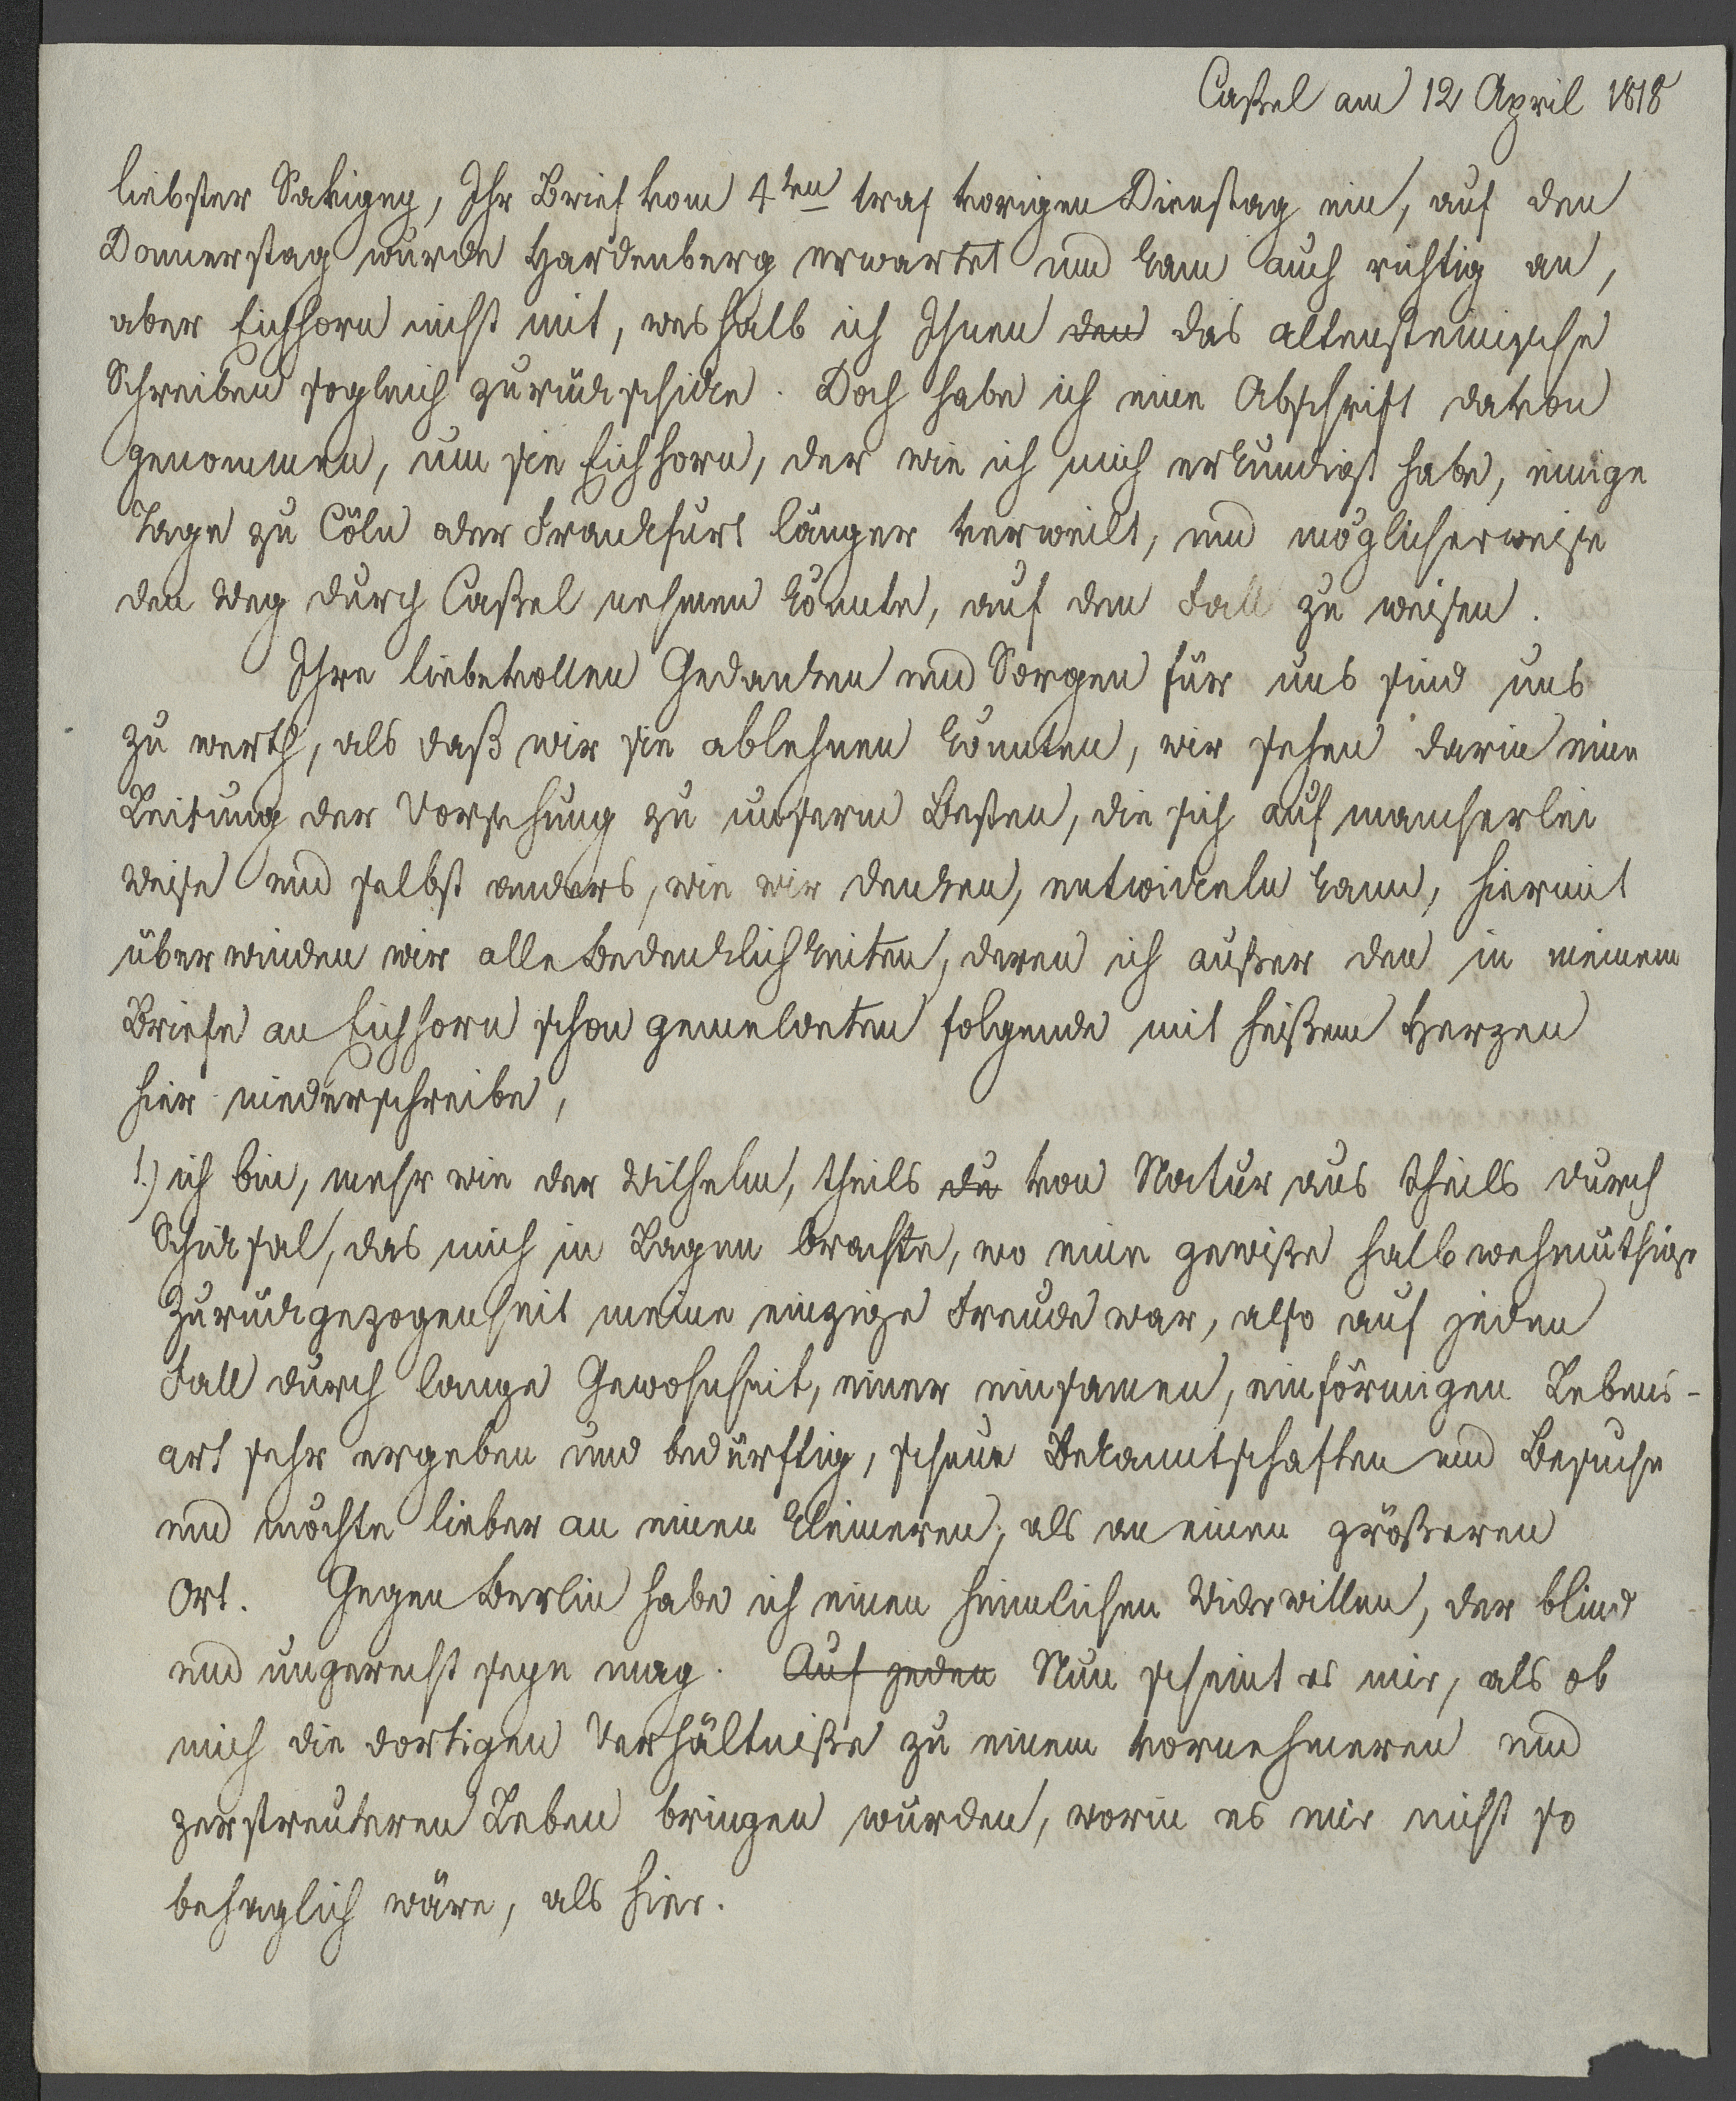 Caßel am 12 April 1818
liebster Savigny, Ihr Brief vom 4ten traf vorigen Dienstag ein, auf den
Donnerstag wurde Hardenberg erwartet und kam auch richtig an,
aber Eichhorn nicht mit, weshalb ich Ihnen den das altensteinische
Schreiben sogleich zurückschicke. Doch habe ich eine Abschrift davon
genommen, um sie Eichhorn, der wie ich mich erkundigt habe, einige
Tage zu Cöln oder Frankfurt länger verweilt, und möglicherweise
den Weg durch Caßel nehmen könnte, auf den Fall zu weisen.
Ihre liebevollen Gedanken und Sorgen für uns sind uns
zu werth, als daß wir sie ablehnen könnten, wir sehen darin eine
Leitung der Vorsehung zu unserm Besten, die sich auf mancherlei
Weise und selbst anders, wie wir denken, entwickeln kann, hiermit
überwinden wir alle Bedenklichkeiten, deren ich außer den in meinem
Briefe an Eichhorn schon gemeldeten folgende mit heißem Herzen
hier niederschreibe,
1.) ich bin, mehr wie der Wilhelm, theils du von Natur aus theils durch
Schicksal, das mich in Lagen brachte, wo eine gewiße halb wehmüthige
Zurückgezogenheit meine einzige Freude war, also auf jeden
Fall durch lange Gewohnheit, einer einsamen, einförmigen Lebens-
art sehr ergeben und bedürftig, scheue Bekanntschaften und Besuche
und möchte lieber an einen kleineren, als an einen größeren
Ort. Gegen Berlin habe ich einen heimlichen Widerwillen, der blind
und ungerecht seyn mag. Auf jeden Nun scheint es mir, als ob
mich die dortigen Verhältniße zu einem vornehmeren und
zerstreuteren Leben bringen würden, worin es mir nicht so
behaglich wäre, als hier.